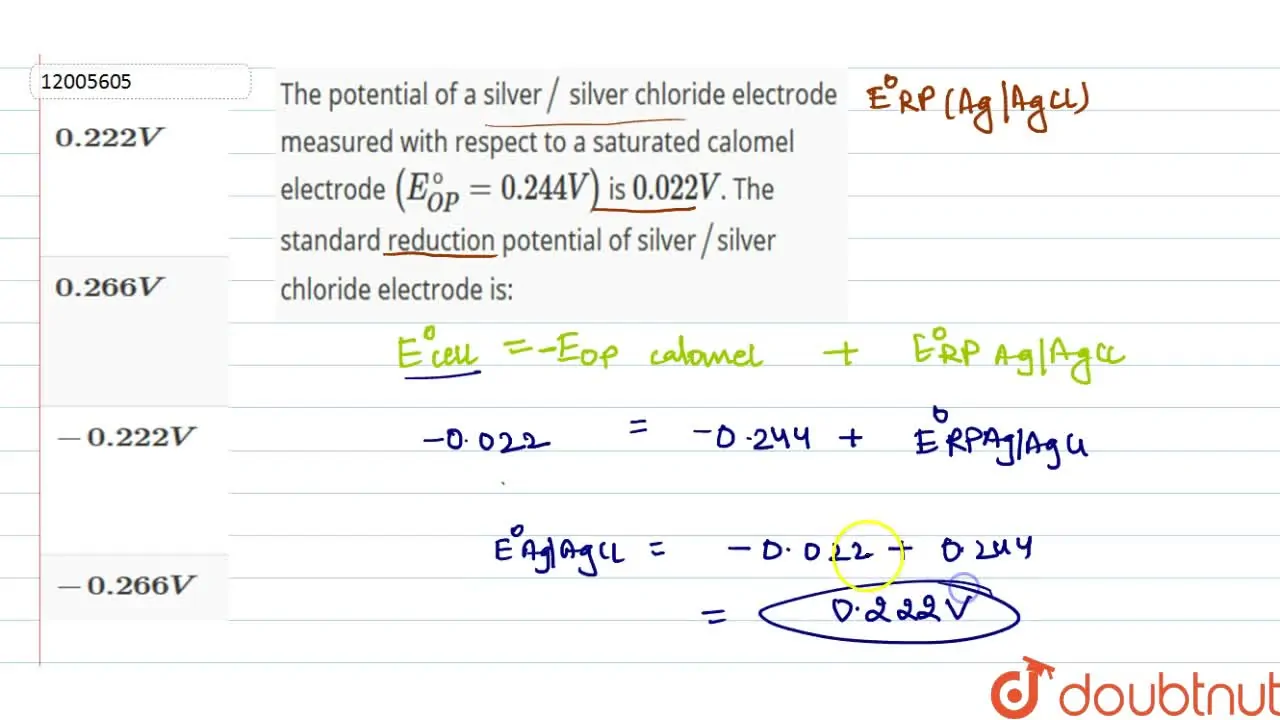 12005605
0.222V
0.266V
−0.222V
−0.266V
The potential of a silver / silver chloride electrode
measured with respect to a saturated calomel
electrode (E°OP = 0.244V) is 0.022V. The
standard reduction potential of silver / silver
chloride electrode is:
E°RP (Ag|AgCl)
E°cell = -EOP calomel + E°RP Ag|AgCl
-0.022 = -0.244 + E°RP Ag|AgCl
E°Ag|AgCl = -0.022 + 0.244
= 0.222V
doubtnut